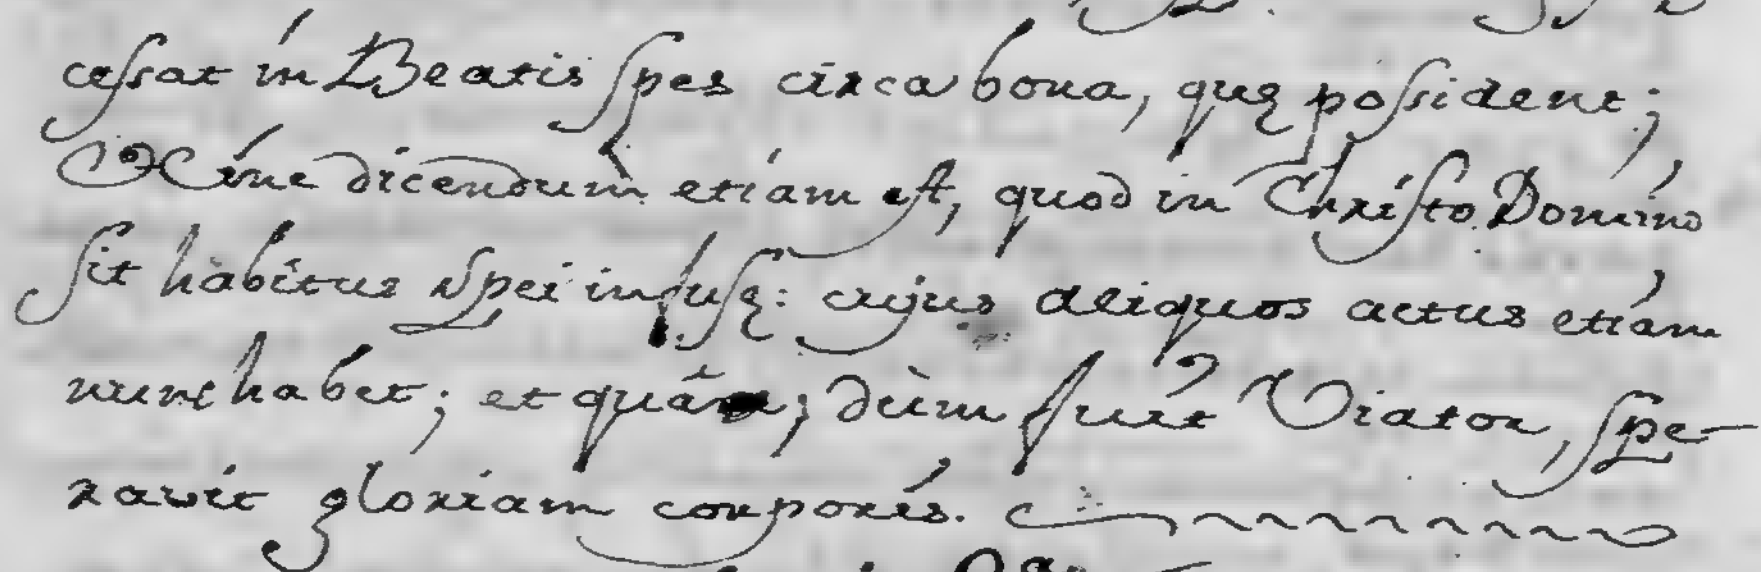 cessat in Beatis spes circa bona, quę possident;
Hinc dicendum etiam est, quod in Christo Domino
sit habitus Spei infusę: cujus aliquos actus etiam
nunc habet; et quâ, dùm fuit Viator, spe-
ravit gloriam corporis.